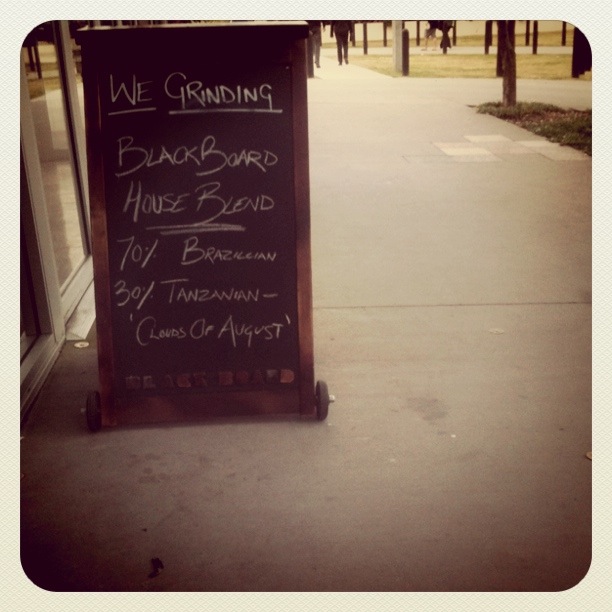 WE GRINDING
BLACKBOARD
HOUSE BLEND
70% BRAZILLIAN
30% TANZANIAN-
'CLOUDS OF AUGUST'
BLACKBOARD